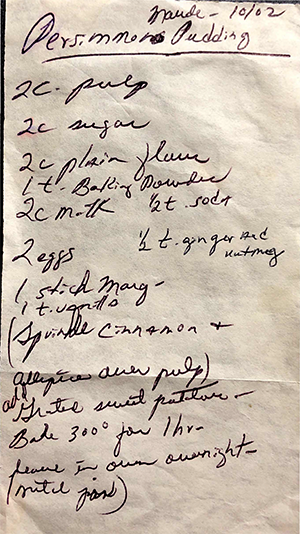 Maude - 10/02
Persimmon Pudding
2c. pulp
2c sugar
2c plain flour
1 t. Baking Powder
2c milk ½ t. soda
2 eggs ½ t. ginger and nutmeg
1 stick marg -
1 t. vanilla
(Sprinkle Cinnamon +
allspice over pulp)
add Grated sweet potatoe -
Bake 300° for 1 hr -
leave in oven overnight -